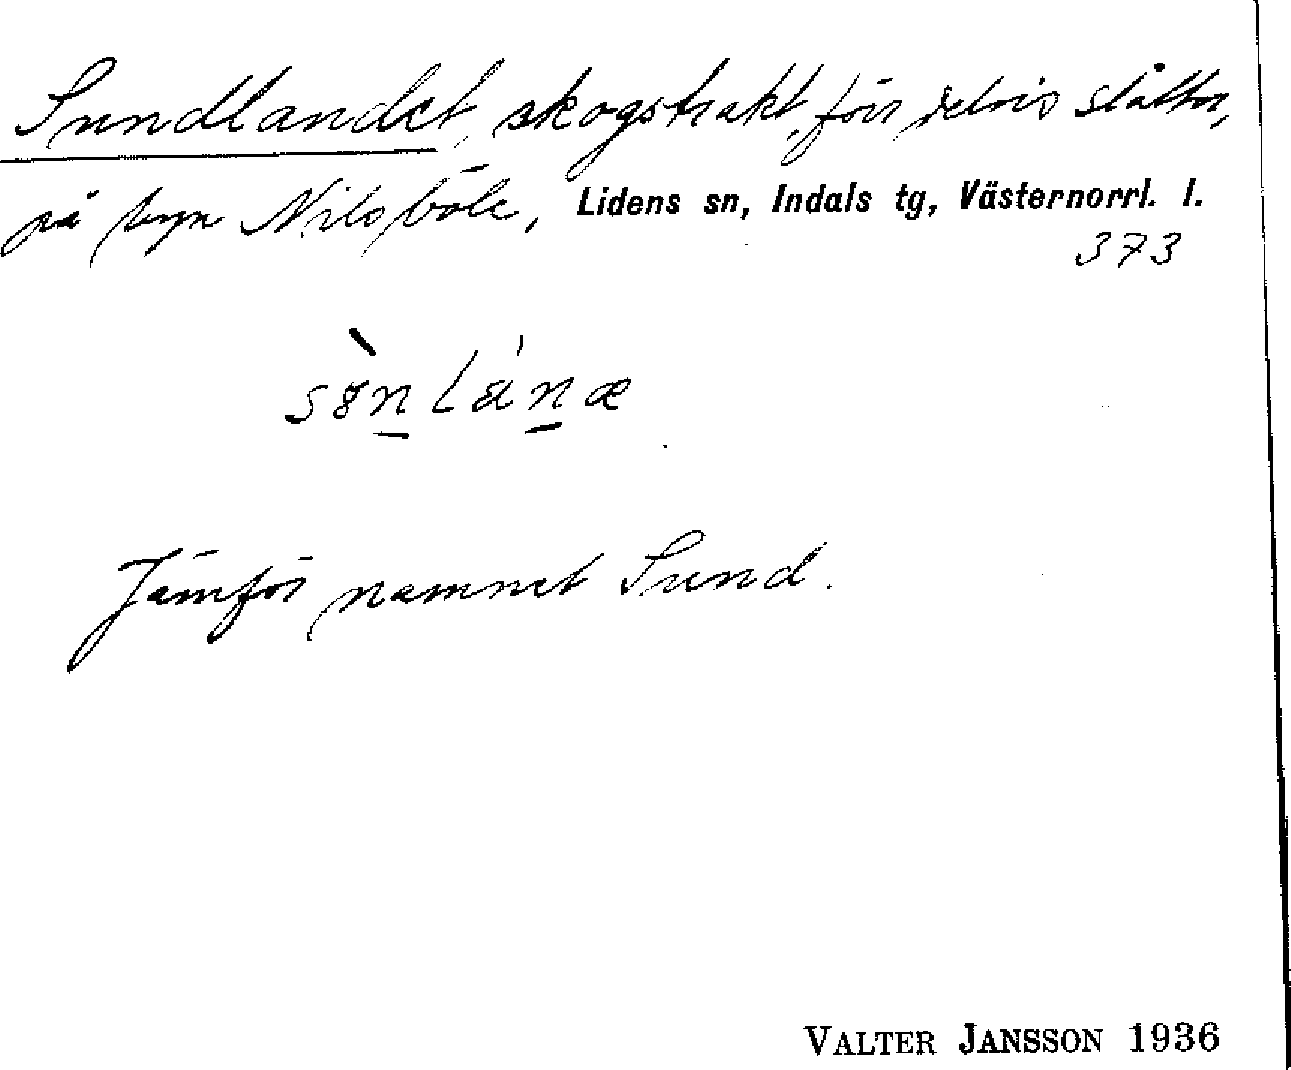 Sundlandet, skogstrakt, förr delvis slåtter,
på byn Nilsböle, Lidens sn, Indals tg, Västernorrl. l.
373
Jämför namnet Sund.
VALTER JANSSON 1936